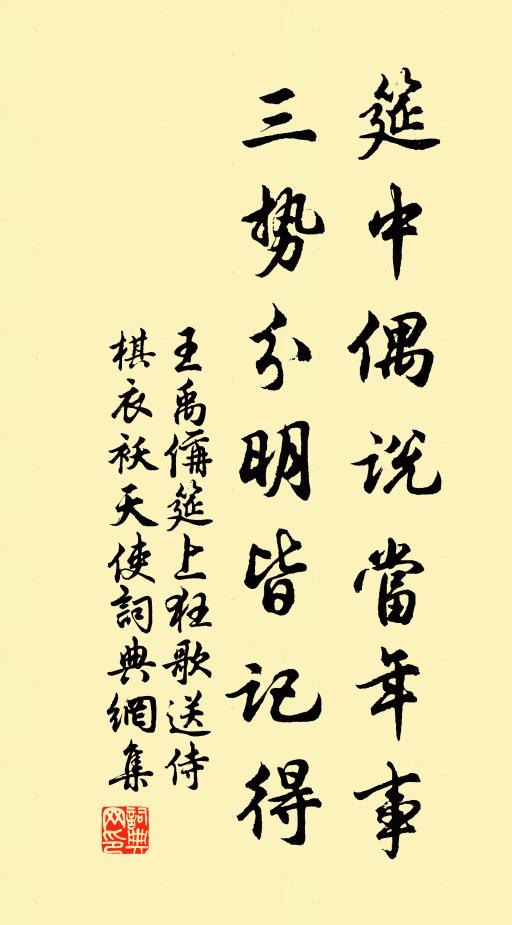 筵中偶說當年事
三勢分明皆記得
王禹偁筵上狂歌送侍
棋衣袄天使詞典網集
詞典
网印